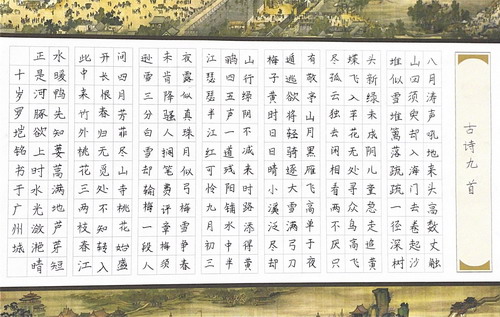 古诗九首
八月涛声吼地来头高数丈触
山回须臾却入海门去卷起沙
堆似雪堆篱落疏疏一径深树
头新绿未成阴儿童急走追黄
蝶飞入菜花无处寻众鸟高飞
尽孤云独去闲相看两不厌只
有敬亭山月黑雁飞高单于夜
遁逃欲将轻骑逐大雪满弓刀
梅子黄时日日晴小溪泛尽却
山行绿阴不减来时路添得黄
鹂四五声一道残阳铺水中半
江瑟瑟半江红可怜九月初三
夜露似真珠月似弓梅雪争春
未肯降骚人搁笔费评章梅须
逊雪三分白雪却输梅一段人
间四月芳菲尽山寺桃花始盛
开长恨春归无觅处不知转入
此中来竹外桃花三两枝春江
水暖鸭先知蒌蒿满地芦芽短
正是河豚欲上时水光潋滟晴
十岁罗垲铭书于广州城